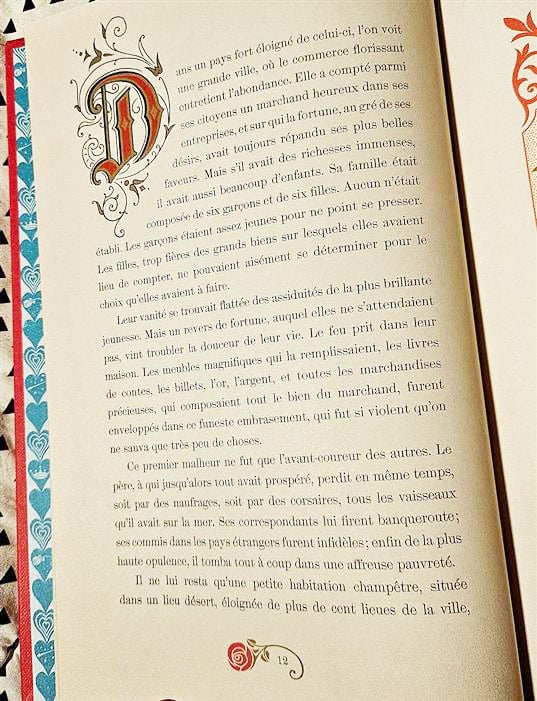 Dans un pays fort éloigné de celui-ci, l'on voit
une grande ville, où le commerce florissant
entretient l'abondance. Elle a compté parmi
ses citoyens un marchand heureux dans ses
entreprises, et sur qui la fortune, au gré de ses
désirs, avait toujours répandu ses plus belles
faveurs. Mais s'il avait des richesses immenses,
il avait aussi beaucoup d'enfants. Sa famille était
composée de six garçons et de six filles. Aucun n'était
établi. Les garçons étaient assez jeunes pour ne point se presser.
Les filles, trop fières des grands biens sur lesquels elles avaient
lieu de compter, ne pouvaient aisément se déterminer pour le
choix qu'elles avaient à faire.
Leur vanité se trouvait flattée des assiduités de la plus brillante
jeunesse. Mais un revers de fortune, auquel elles ne s'attendaient
pas, vint troubler la douceur de leur vie. Le feu prit dans leur
maison. Les meubles magnifiques qui la remplissaient, les livres
de contes, les billets, l'or, l'argent, et toutes les marchandises
précieuses, qui composaient tout le bien du marchand, furent
enveloppés dans ce funeste embrasement, qui fut si violent qu'on
ne sauva que très peu de choses.
Ce premier malheur ne fut que l'avant-coureur des autres. Le
père, à qui jusqu'alors tout avait prospéré, perdit en même temps,
soit par des naufrages, soit par des corsaires, tous les vaisseaux
qu'il avait sur la mer. Ses correspondants lui firent banqueroute ;
ses commis dans les pays étrangers furent infidèles ; enfin de la plus
haute opulence, il tomba tout à coup dans une affreuse pauvreté.
Il ne lui resta qu'une petite habitation champêtre, située
dans un lieu désert, éloignée de plus de cent lieues de la ville,
12